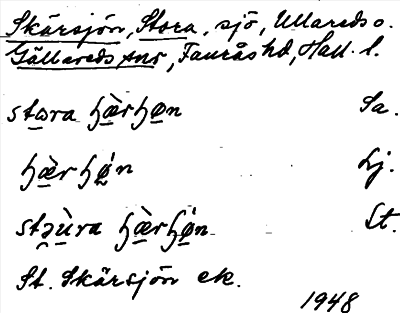 Skärsjön, Stora, sjö, Ullareds o.
Gällareds snr, Faurås hd, Hall. l.
stora hæ̀rhøn Sa.
hæ̀rhǿn Lj.
stəùra hæ̀rhǿn St.
St. Skärsjön ek.
1948